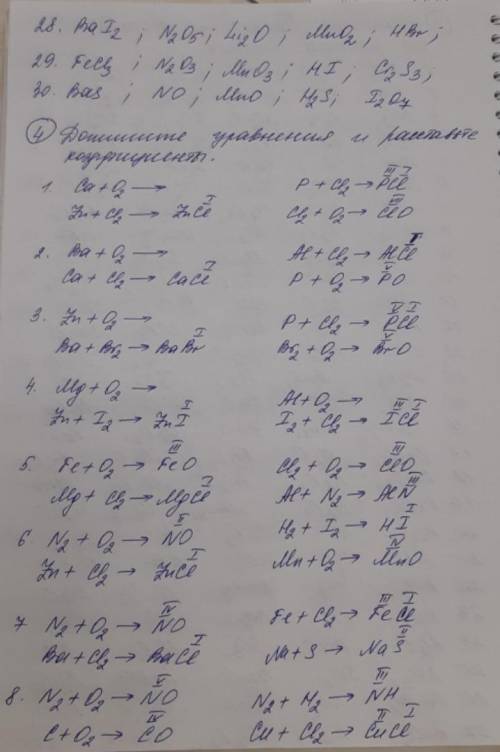 28. BaI2 ; N2O5 ; Li2O ; MnO2 ; HBr ;
29. FeCl3 ; N2O3 ; MnO3 ; HI ; Cr2S3 ;
30. BaS ; NO ; MnO ; H2S ; I2O7
4) Допишите уравнения и расставьте
коэффициент.
1. Ca + O2 → P + Cl2 → P^III Cl^I
Zn + Cl2 → ZnCl^I Cl2 + O2 → Cl^III O
2. Ba + O2 → Al + Cl2 → AlCl^I
Ca + Cl2 → CaCl^I P + O2 → P^V O
3. Zn + O2 → P + Cl2 → P^V Cl^I
Ba + Br2 → BaBr^I Br2 + O2 → Br^V O
4. Mg + O2 → Al + O2 →
Zn + I2 → ZnI^I I2 + Cl2 → I^III Cl^I
5. Fe + O2 → Fe^III O Cl2 + O2 → Cl^III O
Mg + Cl2 → MgCl^I Al + N2 → AlN^III
6 N2 + O2 → N^II O H2 + I2 → HI^I
Zn + Cl2 → ZnCl^I Mn + O2 → Mn^IV O
7 N2 + O2 → N^IV O Fe + Cl2 → Fe^III Cl^I
Ba + Cl2 → BaCl^I Na + S → NaS^II
8. N2 + O2 → N^V O N2 + H2 → N^III H
C + O2 → C^IV O Cu + Cl2 → Cu^II Cl^I